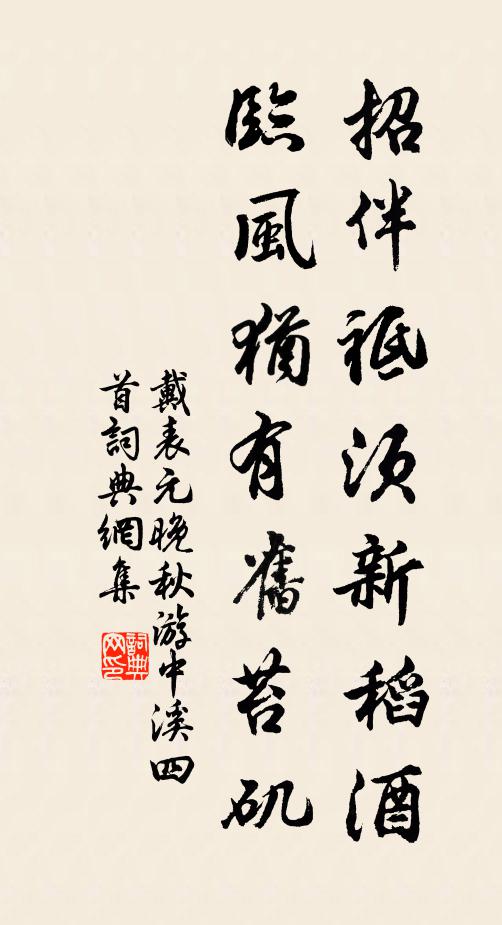 招伴祗須新稻酒
臨風猶有舊苔矶
戴表元晚秋游中溪四
首詞典網集
詞典网印